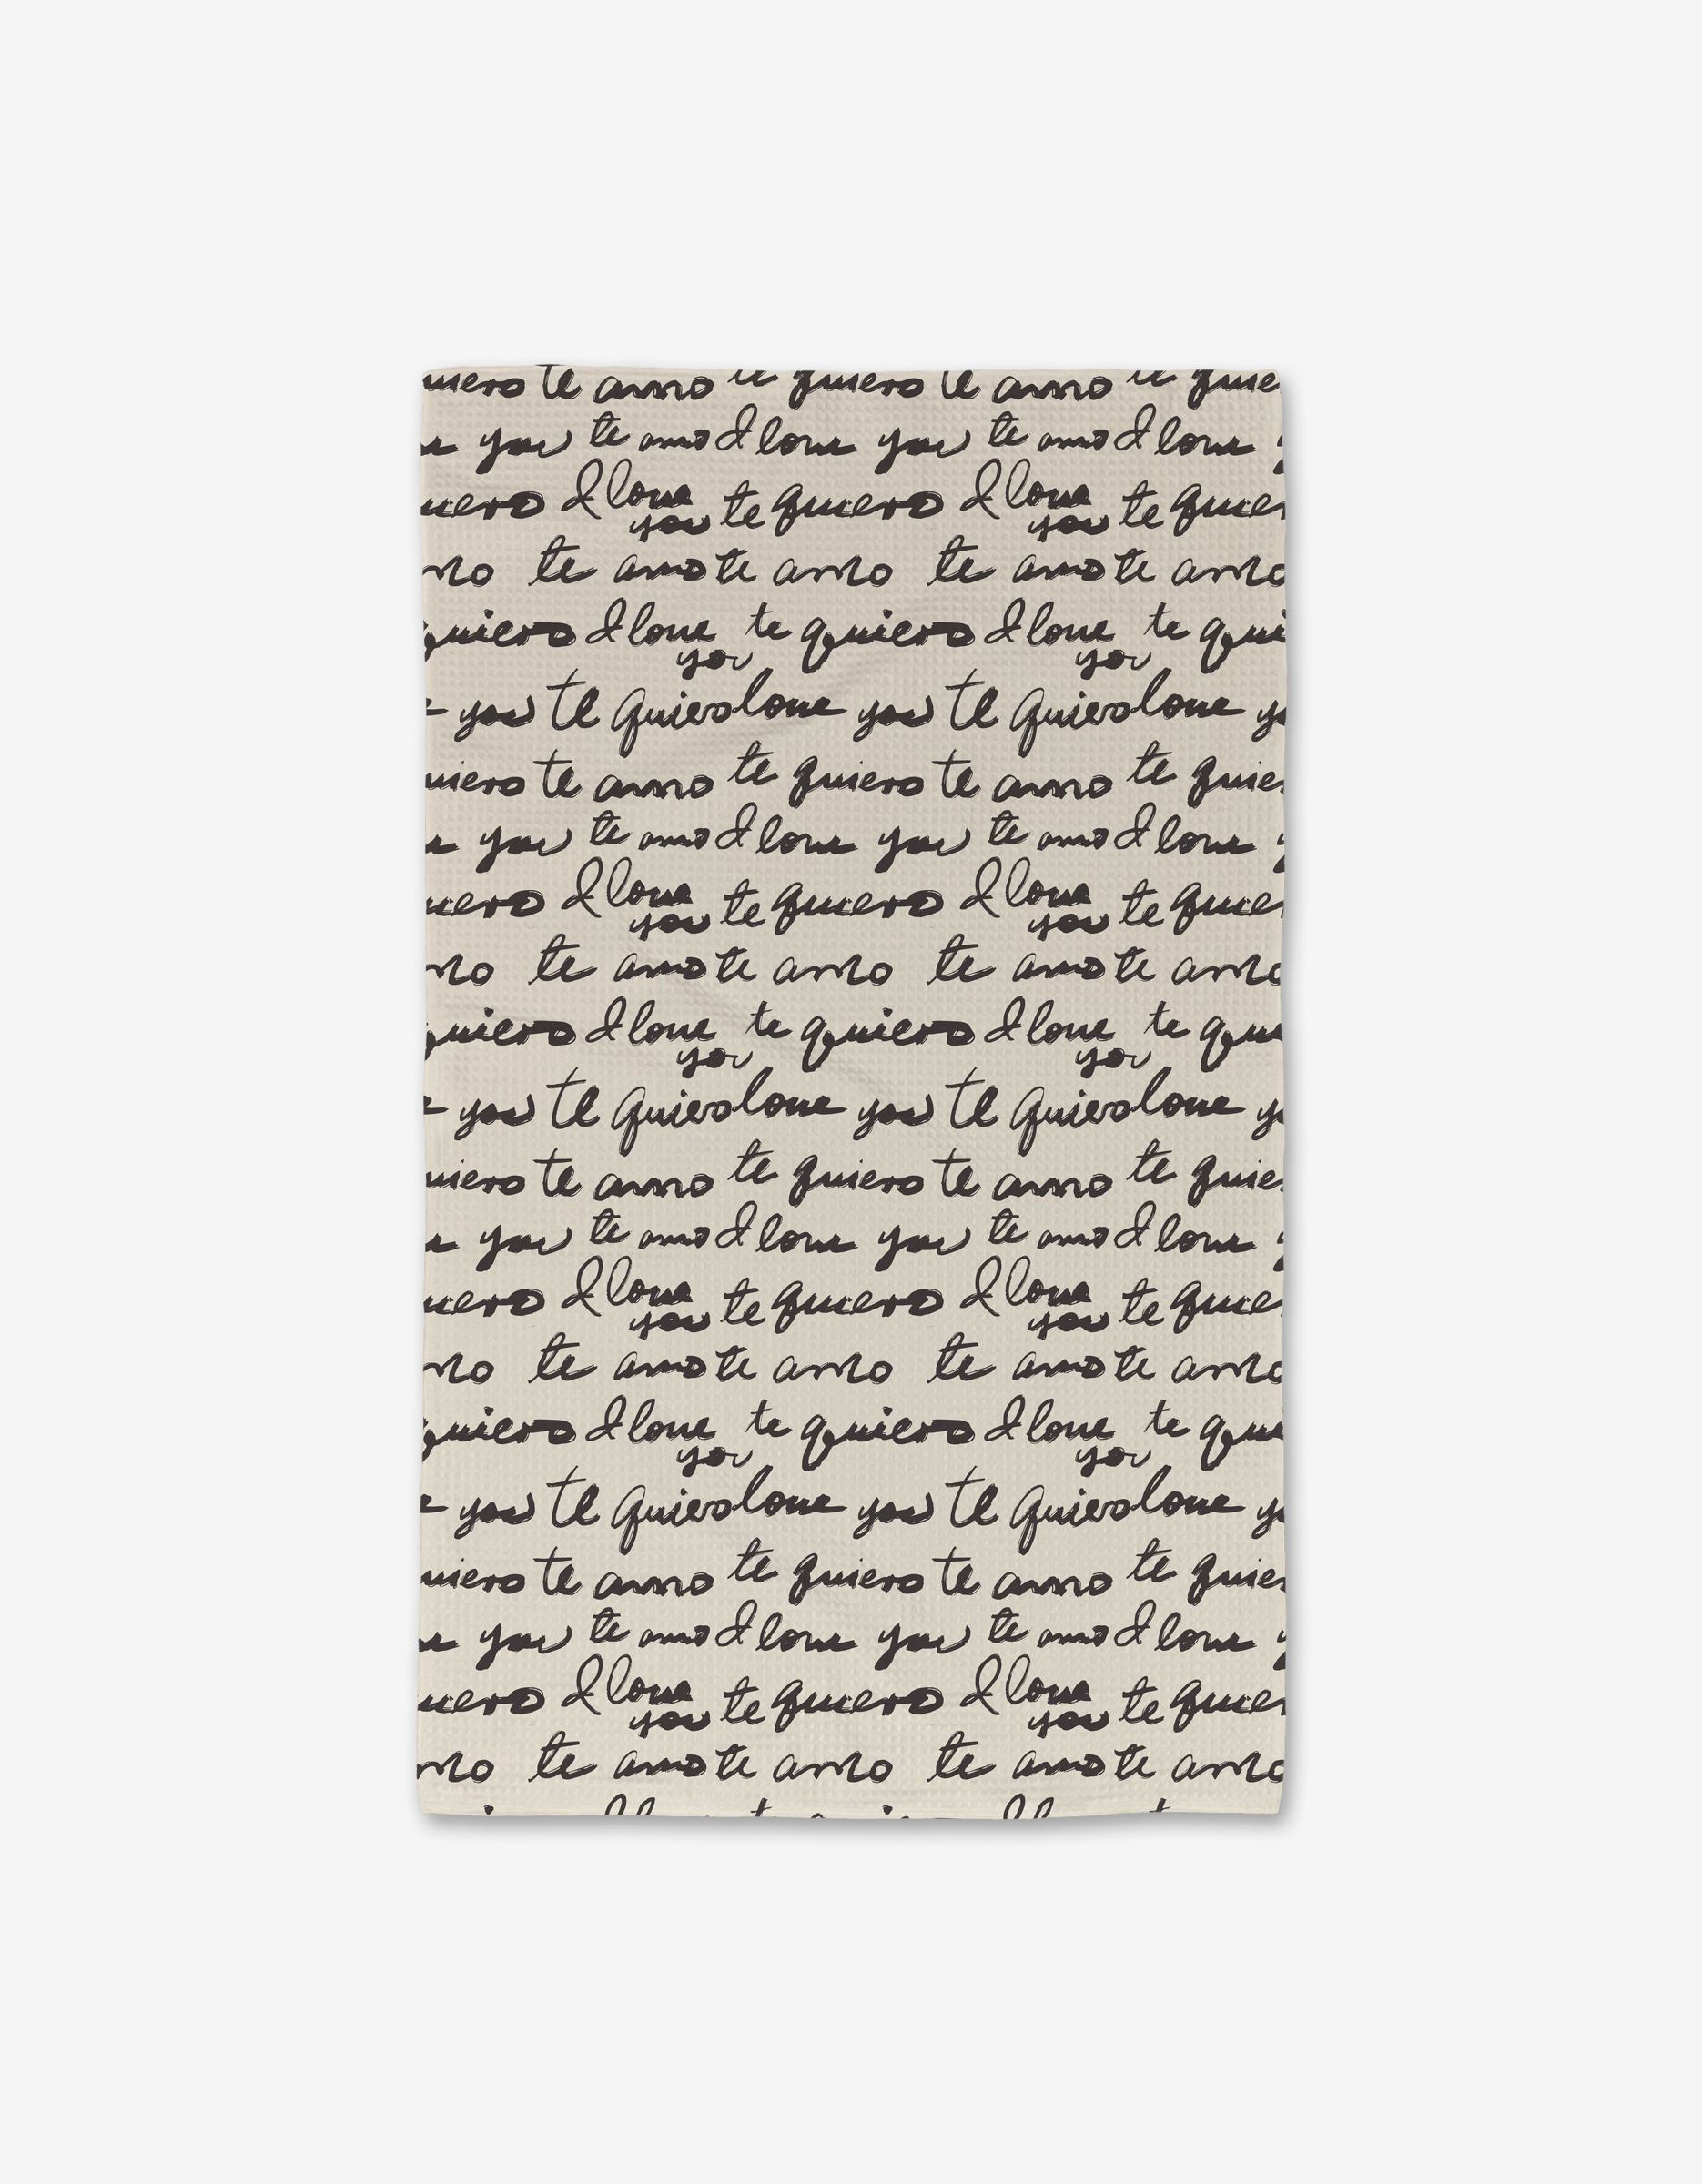 uiero te amo te quiero te amo te quie
you te amo I love you te amo I love y
uiero I love te quiero I love te quier
you you
mo te amo te amo te amo te amo
quiero I love te quiero I love te qui
you you
e you te quiero love you te quiero love yo
uiero te amo te quiero te amo te quier
you te amo I love you te amo I love y
uiero I love te quiero I love te quie
you you
mo te amo te amo te amo te amo
quiero I love te quiero I love te qui
you you
e you te quiero love you te quiero love yo
uiero te amo te quiero te amo te quie
you te amo I love you te amo I love y
uiero I love te quiero I love te quie
you you
mo te amo te amo te amo te amo
quiero I love te quiero I love te qui
you you
e you te quiero love you te quiero love yo
uiero te amo te quiero te amo te quier
you te amo I love you te amo I love y
uiero I love te quiero I love te quier
you you
mo te amo te amo te amo te amo